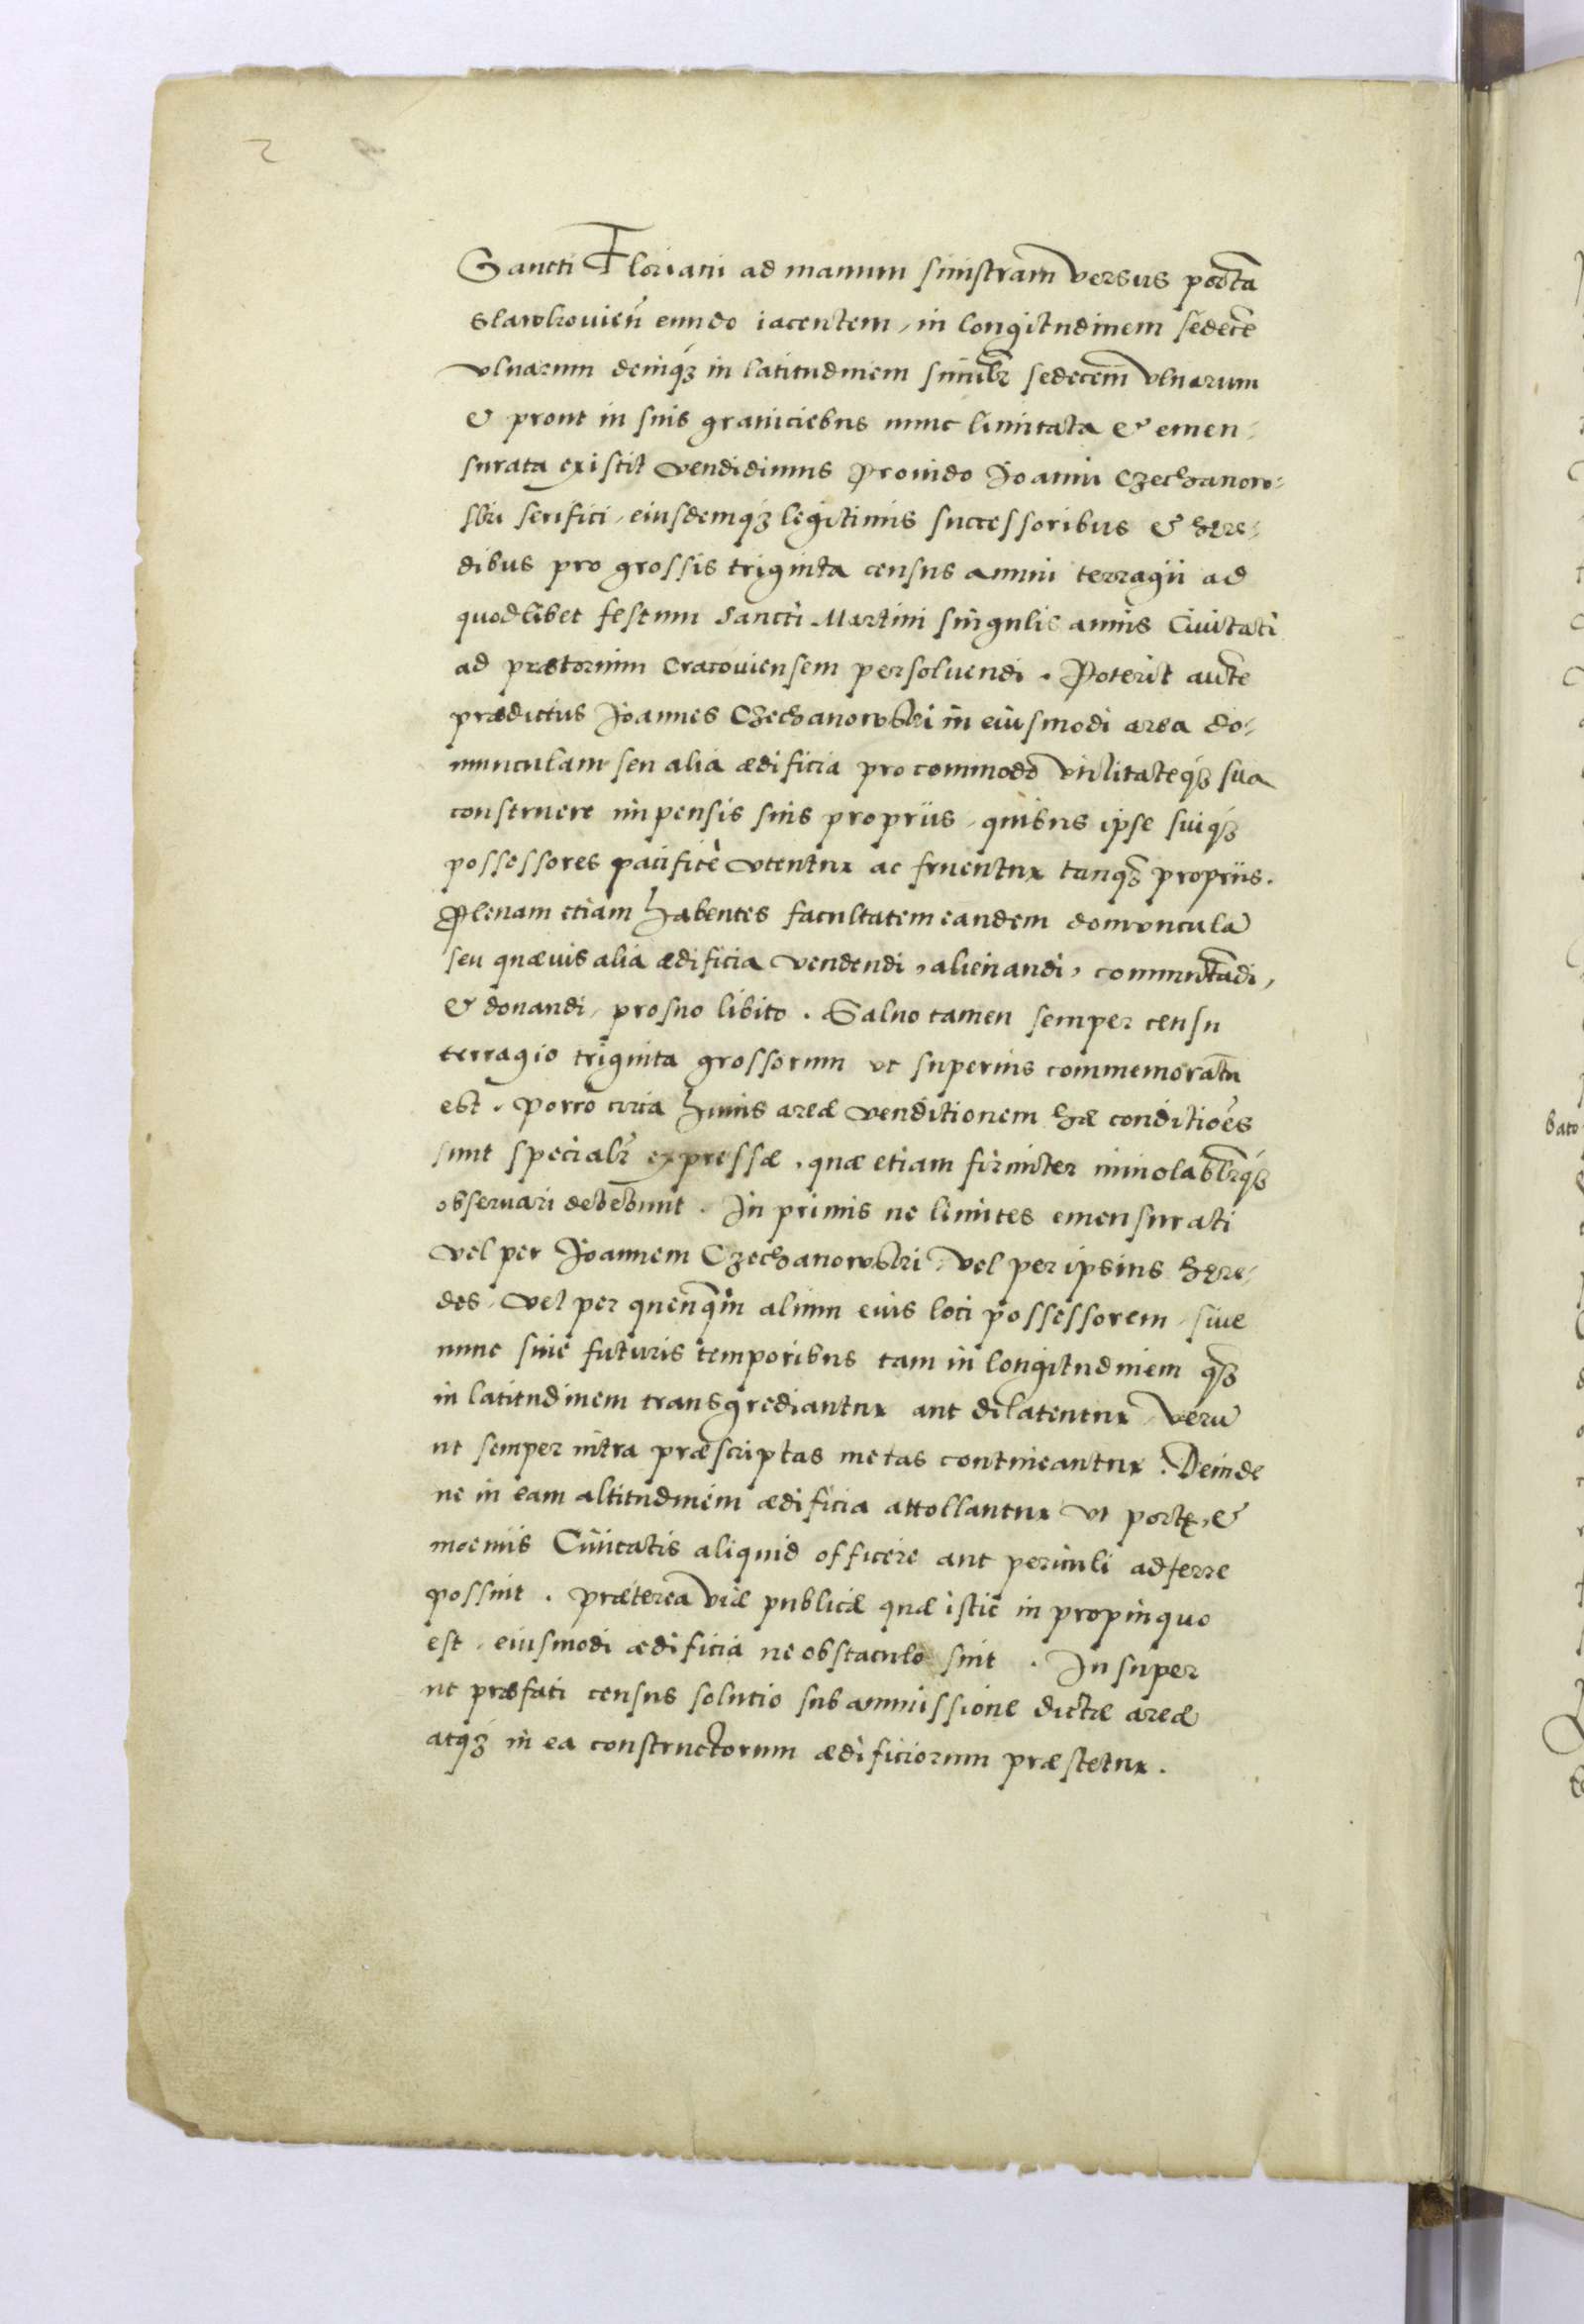 2
Sancti Floriani ad manum sinistram versus portã
Slawkovieñ eundo iacentem, in longitudinem sedecẽ
vlnarum deinq₃ in latitudinem similr̃ sedecem vlnarum
& prout in suis graniciebus nunc limitata & emen-
surata existit vendidimus Provido Joanni Czechanow-
ski serifici, eiusdemq₃ legitimis successoribus & hęre-
dibus pro grossis triginta census annui terragii ad
quodlibet festum Sancti Martini singulis annis Civitati
ad prætorium Cracoviensem persolvendi. Poterit autẽ
prædictus Joannes Czechanowski in eiusmodi area do-
munculam seu alia ædificia pro commodo vtilitateq₃ sua
construere impensis suis propriis, quibus ipse suiq₃
possessores pacificè vtentur ac fruentur tanq̃ propriis.
Plenam etiam habentes facultatem eandem domvnculã
seu quævis alia ædificia vendendi, alienandi, commutãdi,
& donandi, pro suo libito. Salvo tamen semper censu
terragio triginta grossorum vt superius commemoratũ
est. Porro circa huius areæ venditionem hæ conditiões
sunt specialr̃ expressæ, quæ etiam firmiter inviolabilr̃q₃
observari debebunt. In primis ne limites emensurati
vel per Joannem Czechanowski, vel per ipsius hęre-
des, vel per quenq̃m alium eius loci possessorem, sive
nunc sive futuris temporibus tam in longitudinem q̃
in latitudinem transgrediantur aut dilatentur, verũ
ut semper intra præscriptas metas contineantur. Deinde
ne in eam altitudinem ædificia attollantur vt portę, &
moeniis Civitatis aliquid officere aut periculi adferre
possint. Præterea viæ publicæ quæ istic in propinquo
est, eiusmodi ædificia ne obstaculo sint. Insuper
ut præfati census solutio sub ammissione dictæ areæ
atq₃ in ea constructorum ædificiorum præstetur.